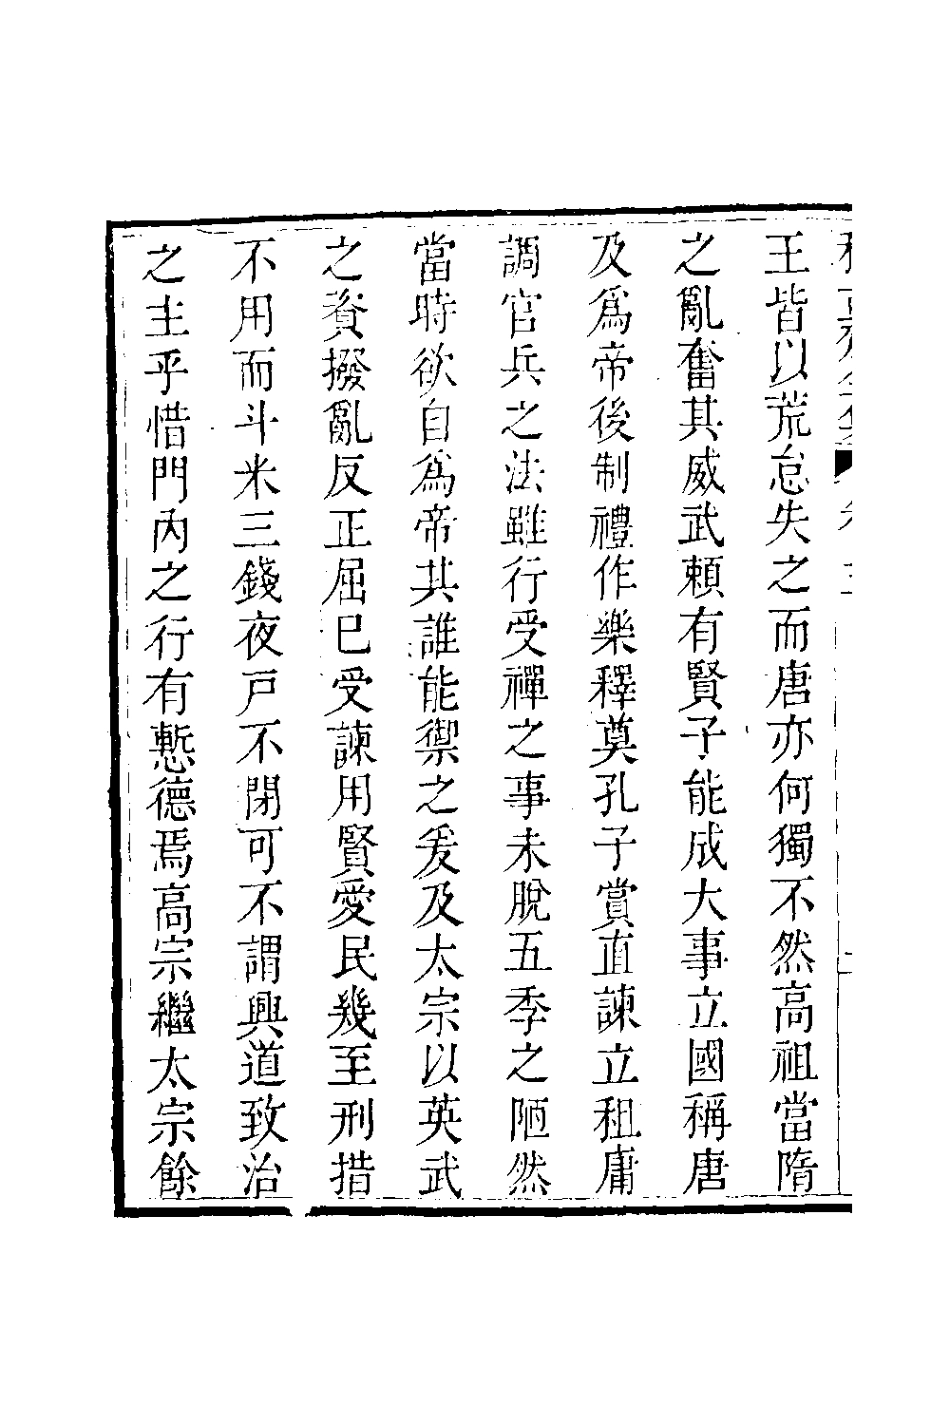 王皆以荒怠失之而唐亦何獨不然高祖當隋
之亂奮其威武頼有賢子能成大事立國稱唐
及爲帝後制禮作樂釋奠孔子賞直諫立租庸
調官兵之法雖行受禪之事未脫五季之陋然
當時欲自爲帝其誰能禦之爰及太宗以英武
之資撥亂反正屈已受諫用賢愛民幾至刑措
不用而斗米三錢夜戸不閉可不謂興道致治
之主乎惜門內之行有慙德焉高宗繼太宗餘